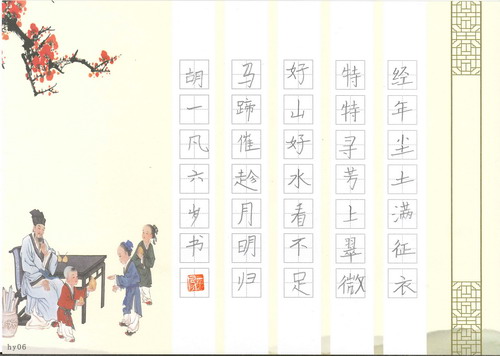 经年尘土满征衣
特特寻芳上翠微
好山好水看不足
马蹄催趁月明归
胡一凡六岁书
hy06